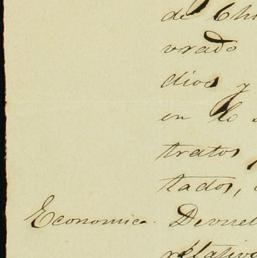 de Chi
vrado
dios y
en lo
tratos
tados,
Economica. Devuel
relativo